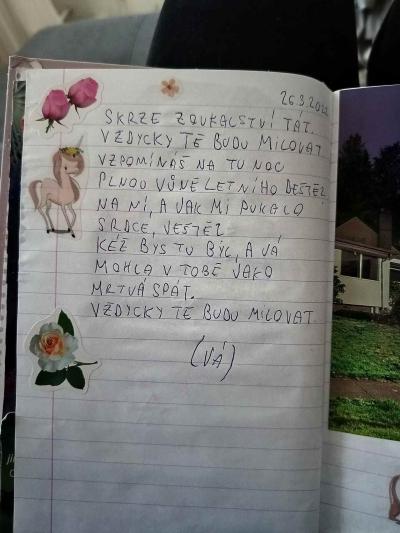 26.3.202
SKRZE ZOUFALSTVÍ TÁT.
VŽDYCKY TĚ BUDU MILOVAT
VZPOMÍNÁŠ NA TU NOC
PLNOU VŮNĚ LETNÍHO DEŠTĚ?
NA NÍ, A JAK MI PUKALO
SRDCE, VEŠTĚ?
KÉŽ BYS TU BYL, A JÁ
MOHLA V TOBĚ JAKO
MRTVÁ SPÁT.
VŽDYCKY TĚ BUDU MILOVAT.
(JÁ)